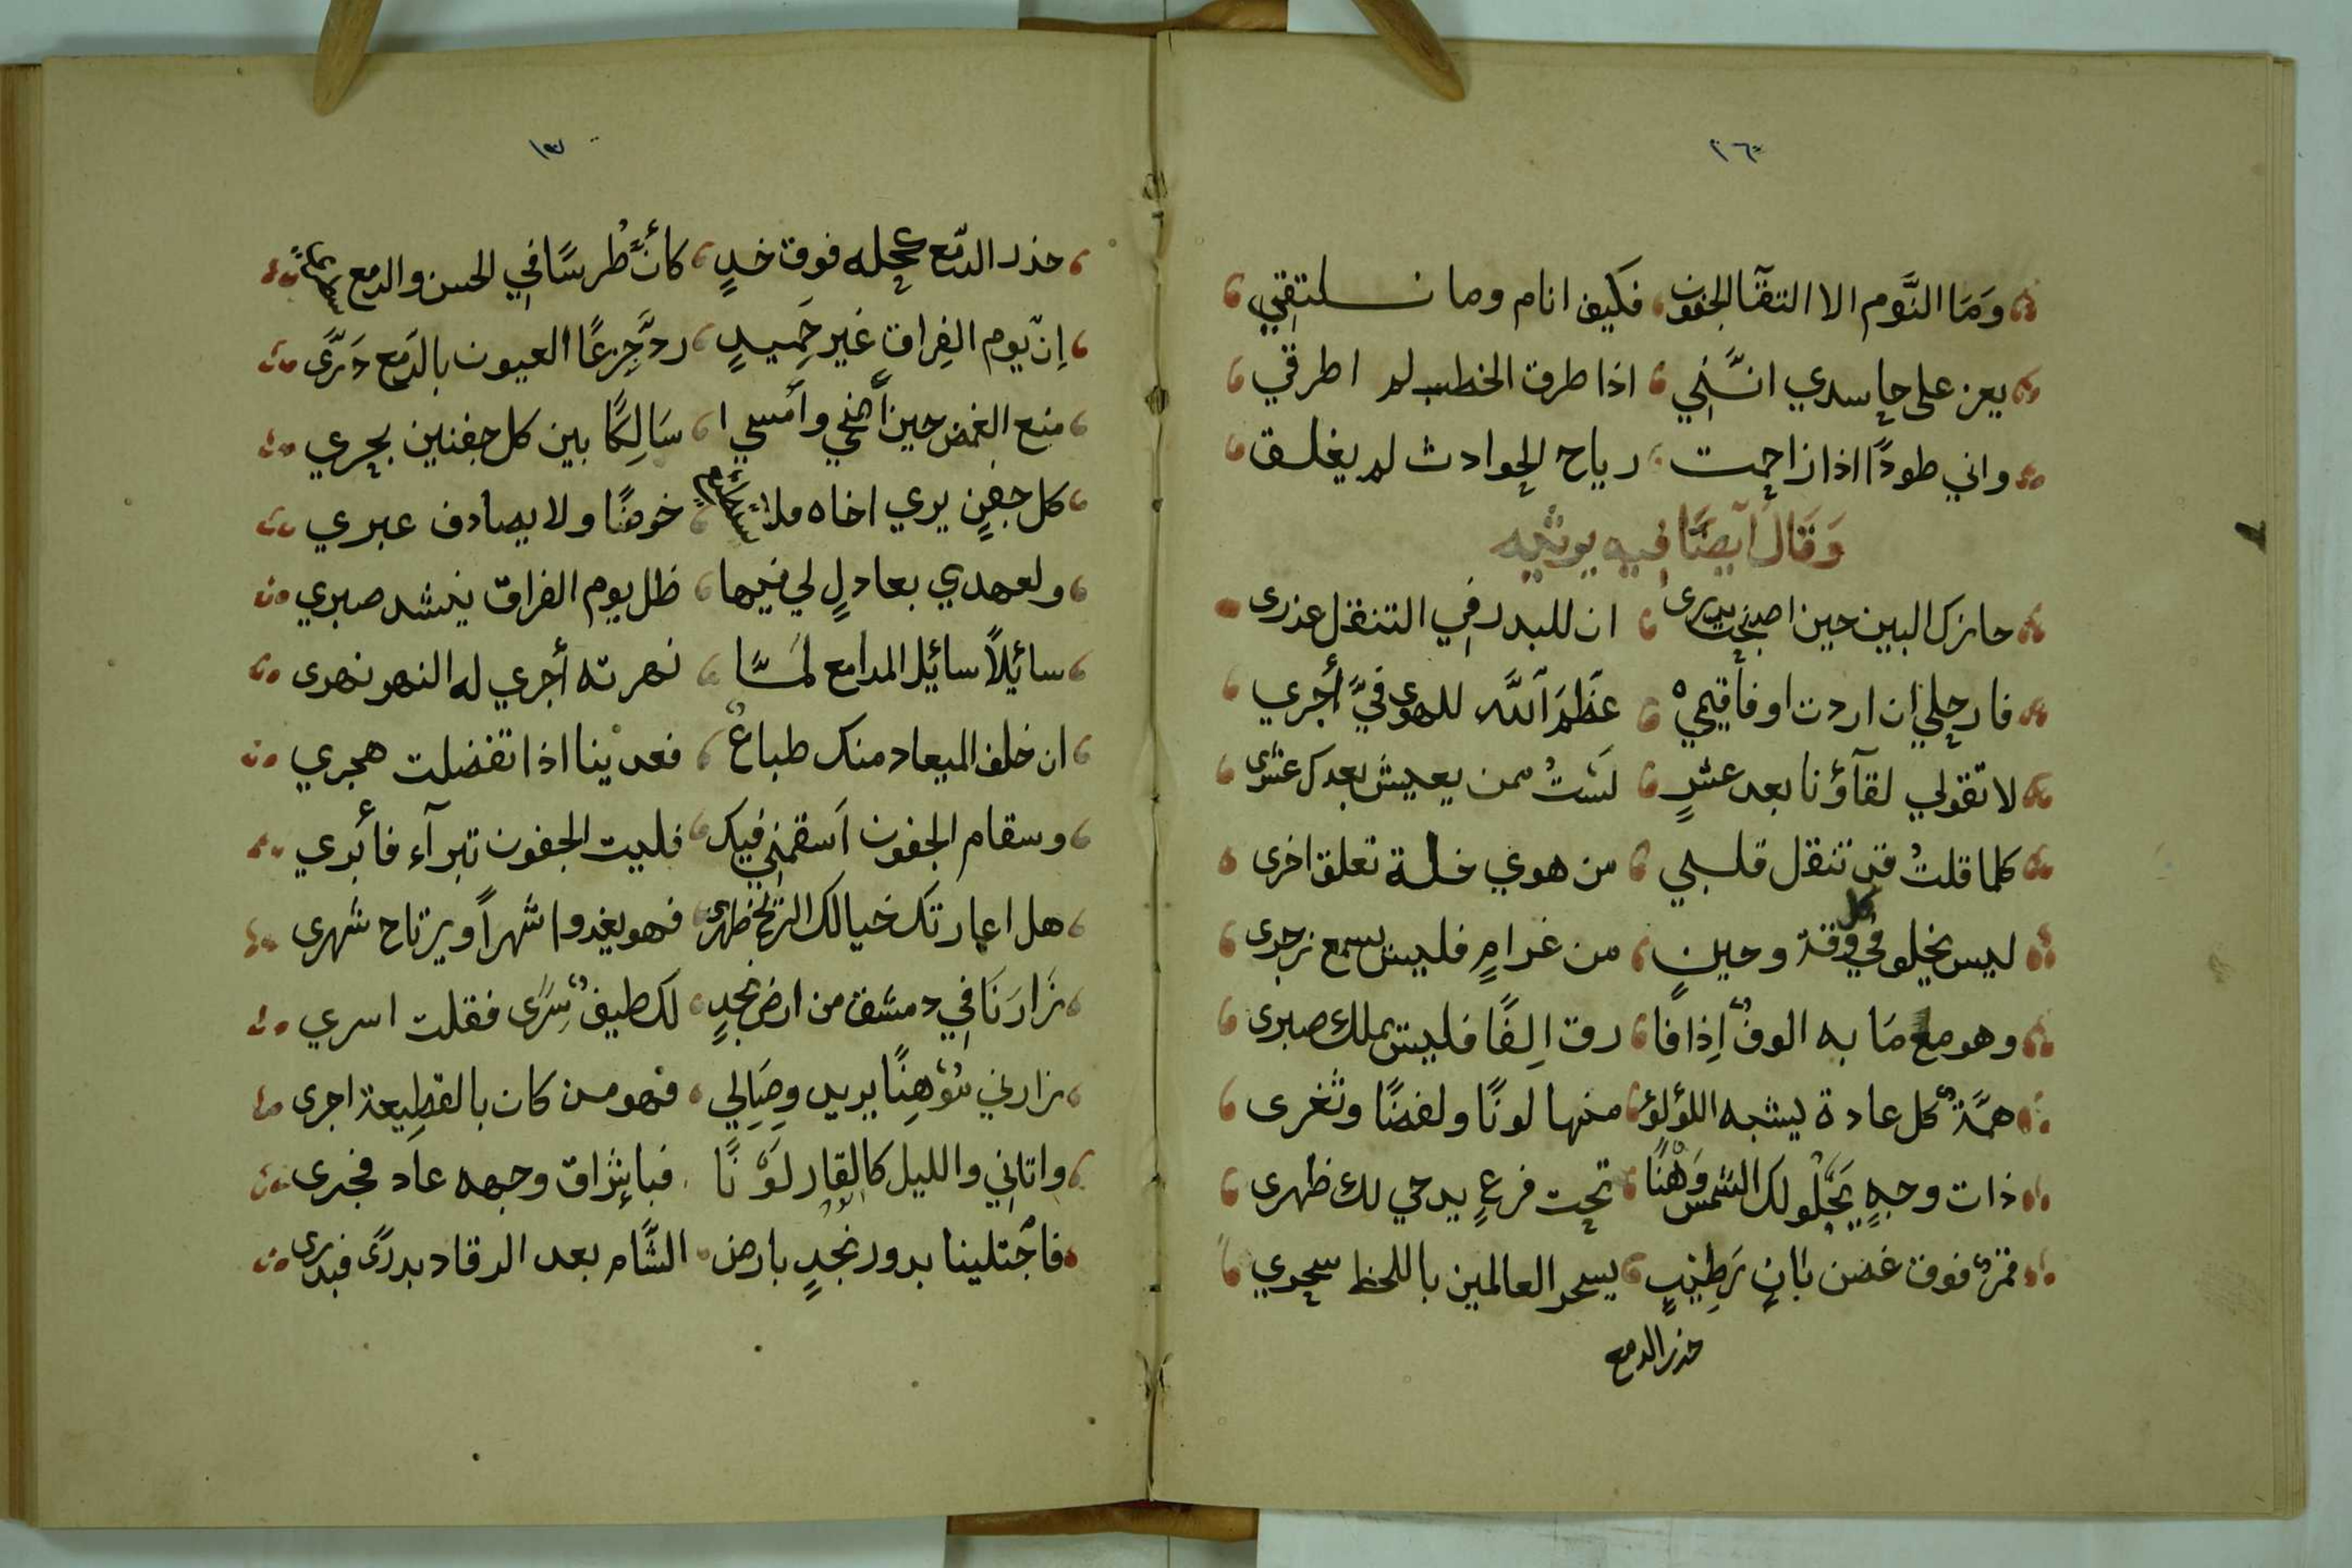 ٢٦
وَمَا النَّوم الا التقآ الجفون فكَيف انام وما نلتقي
يعز على حاسدي انَّني اذا طرق الخطب لم اطرقي
واني طودًا اذا زاحمت رياح الحوادث لم يغلق
وَقَالَ ايضًا فيه
حازك البين حين اصبحت بدرى ان للبدر في التنقل عذرى
فارحلي ان اردت او فأقيمي عَظَّمَ اللَّه للهوى فيَّ أجري
لا تقولي لقآؤنا بعد عشرٍ لَستُ ممن يعيش بعدك عشرى
كلما قلتُ قد تنقل قلبي من هوي خلة تعلق اخرى
ليس يخلو في كل وقة وحينٍ من غرامٍ فليس يسمع زجرى
وهو مع مَا به الوفٌ اِذا فا رق اِلفًا فليس يملك صبرى
همّةٌ كل عادة يشبه اللؤلؤ منها لونًا ولفضًا وثغرى
ذات وجهٍ يَجْلُو لك الشمس وَهْنًا تحت فرعٍ يدجي لك ظهرى
قمرٌ فوق غضن بَانٍ رَطِيْبٍ يسحر العالمين باللحظ سحري
حذر الدمع
حذر الدّمع عجله فوق خدٍ كأنَّ طُرسًا في الحسن والدمع
اِنّ يوم الفِراق غير حَمِيدٍ ردَّ جِزعًا العيون بالدَمع دَرَّى
منع الغمض حين أضحي وأمسي ا سَالِكًا بين كل جفنين بحري
كل جفنٍ يري اخاه ملا خوضًا ولا يصادف عبري
ولعهدي بعادلٍ لي فيها ظل يوم الفراق ينشد صبري
سائلاً سائل المدامع لمَّا نهرته أجري له النهر نهرى
ان خلف الميعاد منك طباعٌ فعدينا اذا تفضلت هجري
وسقام الجفون اَسقمني فيك فليت الجفون تبرآء فأبري
هل اعارتك خيالك الريح ظهرى فهو يغدوا شهراً ويرتاح شهرى
زَارَنَا في دمشق من ارض نجدٍ لك طيفٌ سِرَى فقلت اسري
زارني مُوْهِنًا يريد وِصَالِي فهو من كان بالقطِيعة اجرى
واتاني والليل كالقار لوْنًا فباِشراق وجهه عاد فجرى
فاجْتلينا بدور نجدٍ بارض الشّام بعد الرقاد بدرًى فبدرى